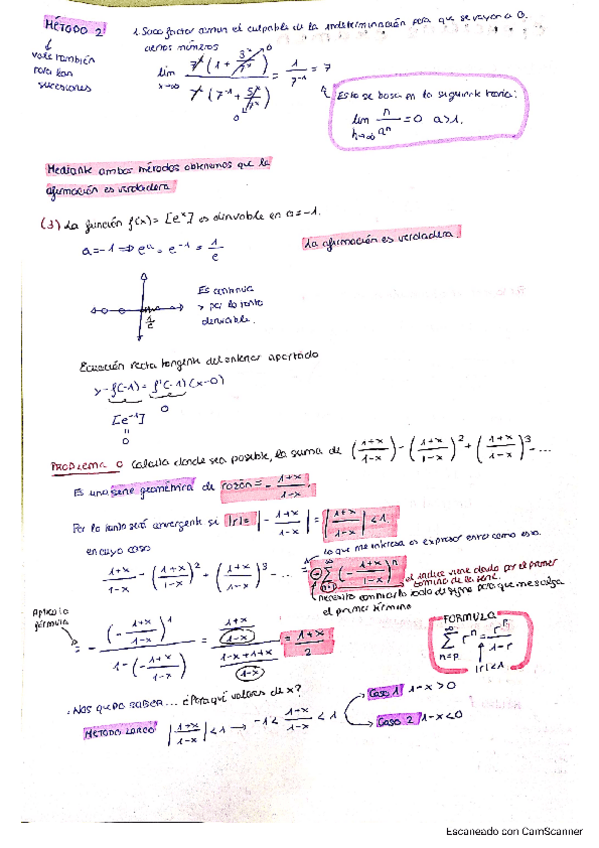 MÉTODO 2
vale también para las sucesiones
1. Saco factor común el culpable de la indeterminación para que se vayan a 0.
lim x→∞ 7^x (1 + 3^x/7^x) / 7^x (7^-1 + 5^x/7^x) = 1/7^-1 = 7
0
0
Esto se basa en la siguiente teoría:
lim n→∞ n/a^n = 0 a>1.
Mediante ambos métodos obtenemos que la
afirmación es verdadera
(3) La función f(x) = [e^x] es derivable en a=-1.
a=-1 ⇒ e^a = e^-1 = 1/e
La afirmación es verdadera.
1/e
Es continua
y por lo tanto
derivable.
Ecuación recta tangente del anterior apartado
y - f(-1) = f'(-1) (x-0)
[e^-1]
0
0
PROBLEMA Calcula donde sea posible, la suma de (1+x/1-x) - (1+x/1-x)^2 + (1+x/1-x)^3 - ...
Es una serie geométrica de razón = - 1+x/1-x.
Por lo tanto será convergente si |r| = |- 1+x/1-x| = |1+x/1-x| < 1.
en cuyo caso
lo que me interesa es expresar esto como esta.
1+x/1-x - (1+x/1-x)^2 + (1+x/1-x)^3 - ... = - ∑ n=1 ∞ (- 1+x/1-x)^n
el índice viene dado por el primer
término de la serie.
necesito cambiarlo todo de signo para que me salga
el primer término
Aplico la
fórmula
= - (- 1+x/1-x)^1 / 1-(- 1+x/1-x) = 1+x/1-x / 1-x+1+x/1-x = 1+x/2
FORMULA
∑ n=p ∞ r^n = r^p/1-r
|r|<1
Nos queda saber... ¿Para qué valores de x?
MÉTODO LARGO |1+x/1-x| < 1 → -1 < 1+x/1-x < 1
Caso 1 1-x > 0
Caso 2 1-x < 0
Escaneado con CamScanner